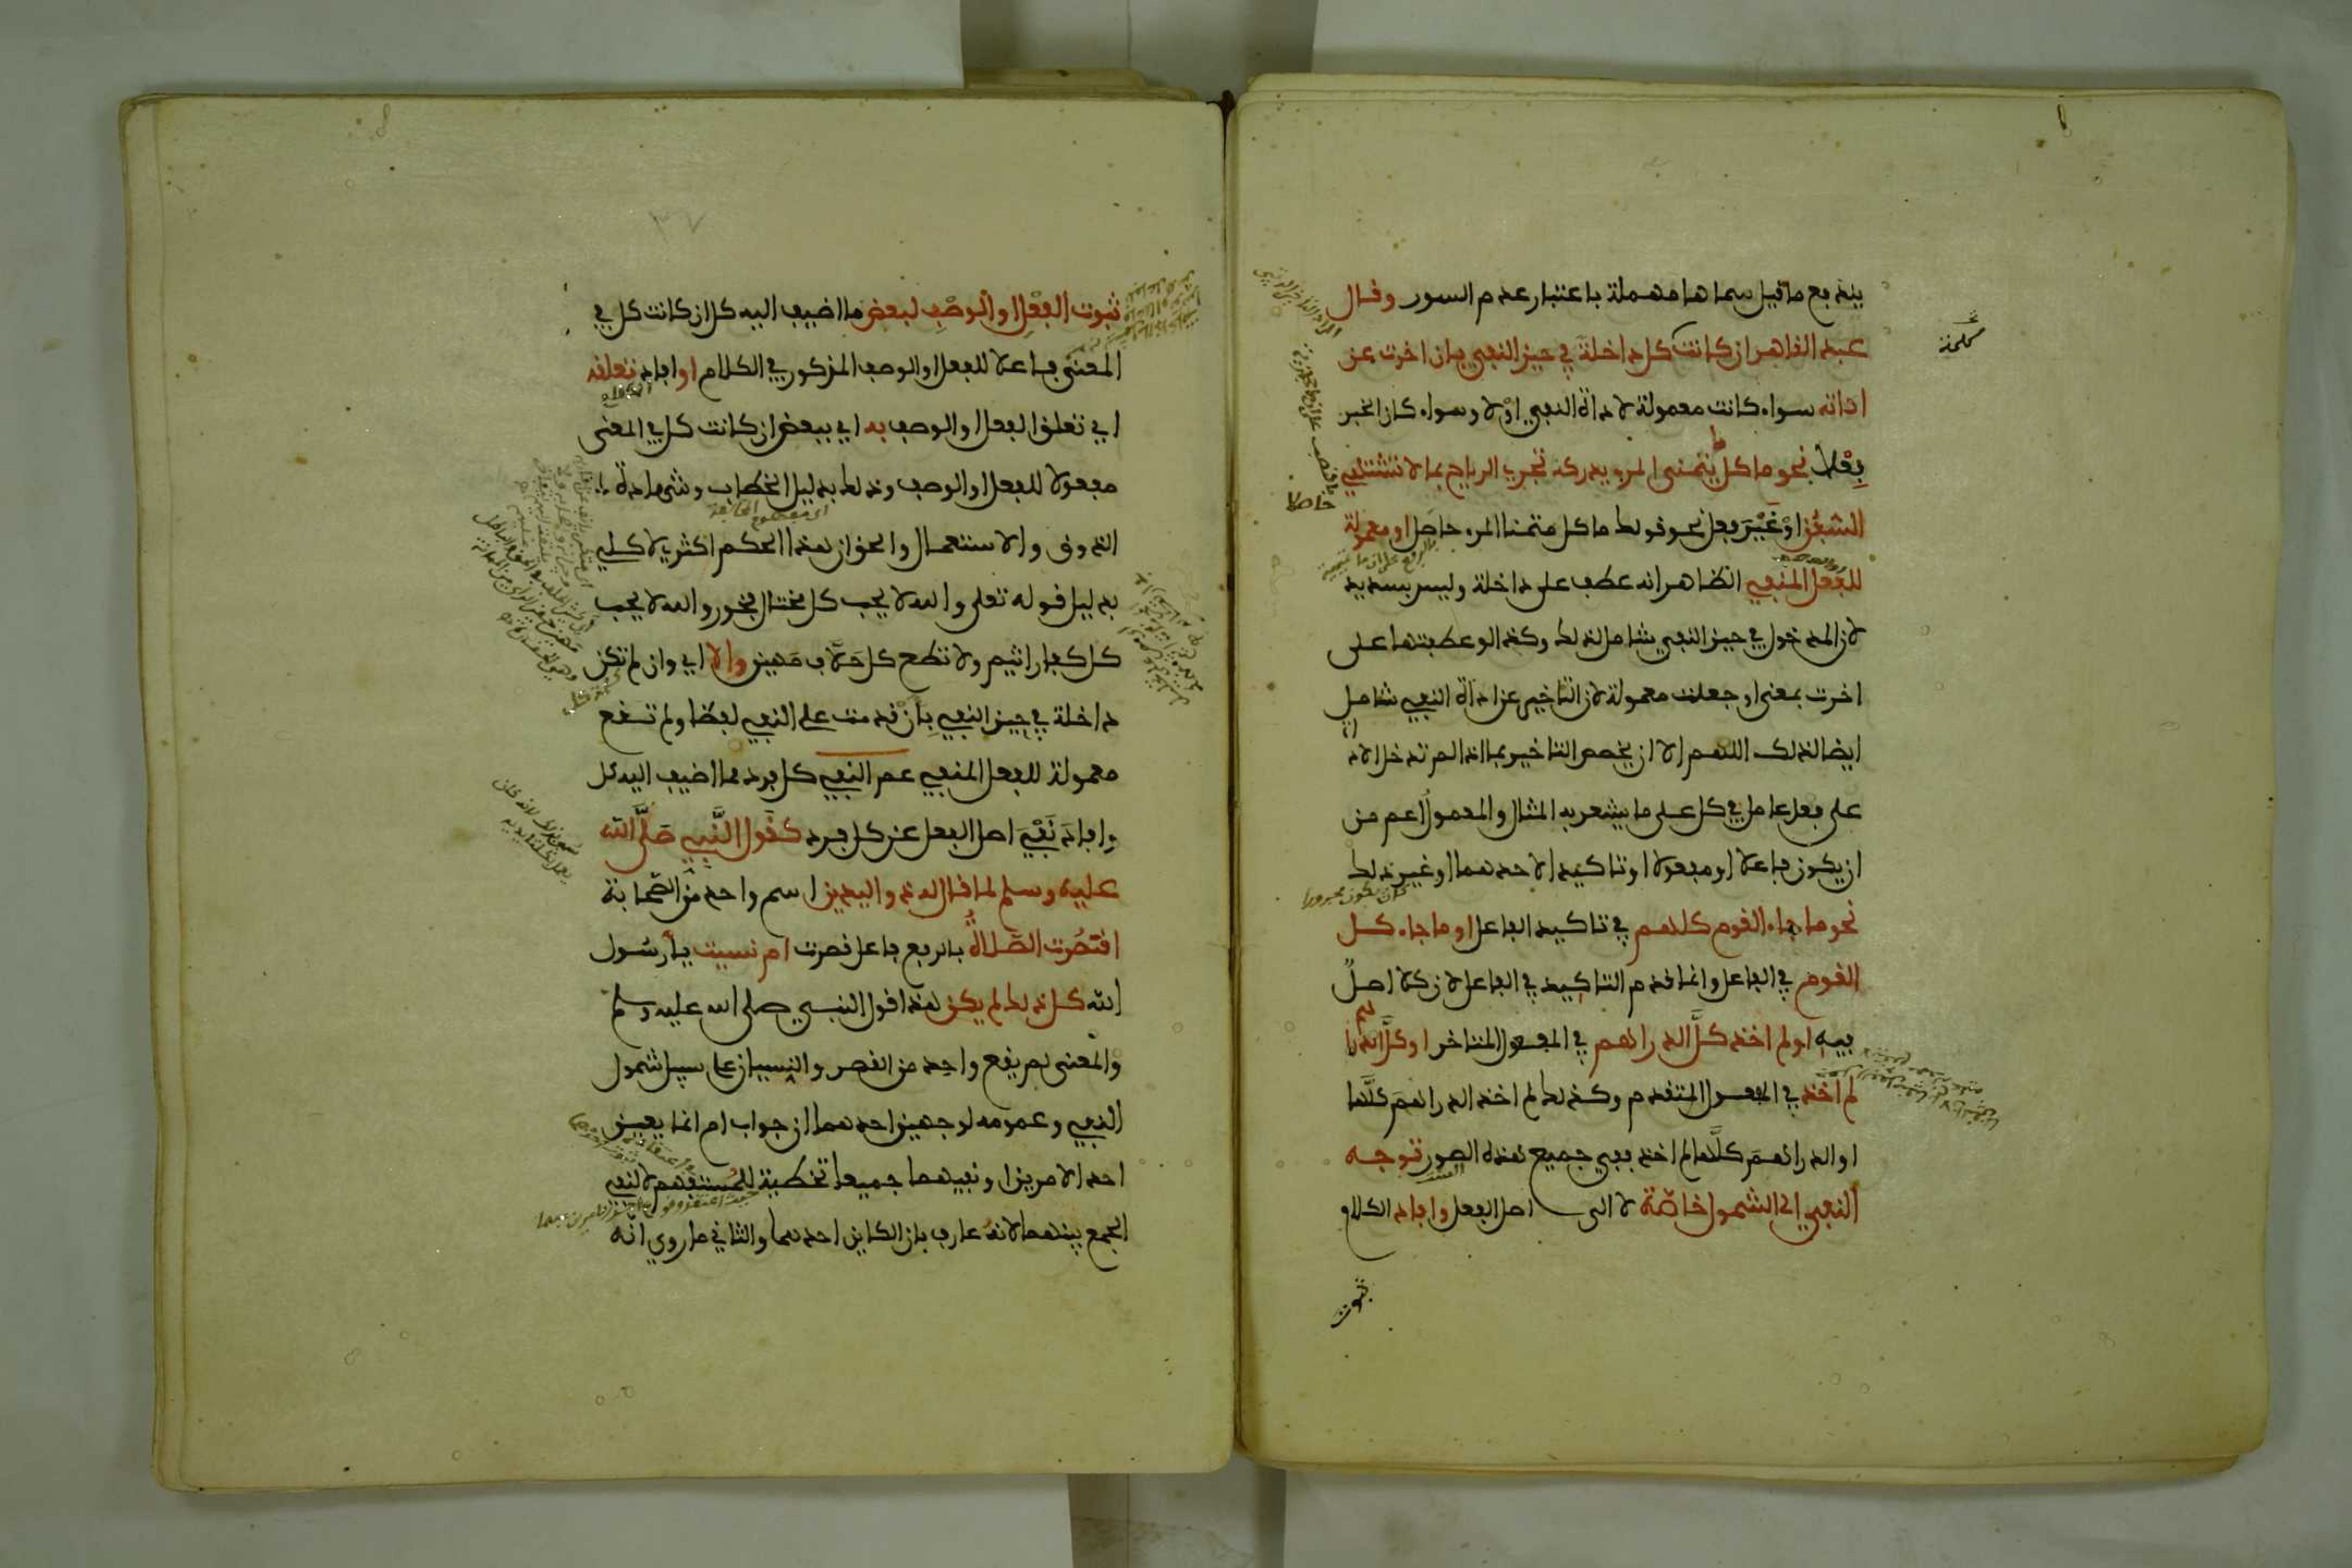 يندفع ما قيل سماها مهملة باعتبار عدم السور وقال
عبد القاهر ان كانت كل داخلة في حيز النفي بان اخرت عن
اداته سواء كانت معمولة لاداة النفي اولا وسواء كان الخبر
فعلا نحو ما كل يتمنى المرء يدركه تجري الرياح بما لا تشتهي
السفن او غير فعل نحو قولك ما كل متمنا المرء حاصل او معمولة
للفعل المنفي الظاهر انه عطف على داخلة وليس بسديد
لان الدخول في حيز النفي شامل لذلك وكذا لو عطفتها على
اخرت بمعنى او جعلت معمولة لان التاخير عن اداة النفي شامل
ايضا لذلك اللهم الا ان يخصص التاخير بما اذا لم تدخل الاد
على فعل عامل في كل على ما يشعر به المثال والمعمول اعم من
ان يكون فاعلا او مفعولا او تاكيدا لاحدهما او غير ذلك
كان يكون مجرورا
نحو ما جاء القوم كلهم في تاكيد الفاعل او ما جاء كل
القوم في الفاعل وانما قدم التاكيد في الفاعل لان كلا اصل
فيه او لم اخذ كل الدراهم في المفعول المتاخر او كل الدرا
لم اخذ في المفعول المتقدم وكذلك لم اخذ الدراهم كلها
او الدراهم كلها لم اخذ ففي جميع هذه الصور توجه
النفي الى الشمول خاصة لا الى اصل الفعل وافاد الكلام
ثبوت
ثبوت الفعل او الوصف لبعض ما اضيف اليه كل ان كانت كل في
المعنى فاعلا للفعل او الوصف المذكور في الكلام او افاد تعلقه
اي تعلق الفعل او الوصف به اي ببعض ان كانت كل في المعنى
مفعولا للفعل او الوصف وذلك بدليل الخطاب وشهادة
الذوق والاستعمال والحق ان هذا الحكم اكثري لا كلي
بدليل قوله تعلى والله لا يحب كل مختال فخور والله لا يحب
كل كفار اثيم ولا تطع كل حلاف مهين والا اي وان لم تكن
داخلة في حيز النفي بان قدمت على النفي لفظا ولم تقع
معمولة للفعل المنفي عم النفي كل فرد مما اضيف اليه كل
وافاد نفي اصل الفعل عن كل فرد كقول النبي صلى الله
عليه وسلم لما قال له ذو اليدين اسم واحد من الصحابة
اقصرت الصلاة بالرفع فاعل قصرت ام نسيت يا رسول
الله كل ذلك لم يكن هذا قول النبي صلى الله عليه وسلم
والمعنى لم يقع واحد من القصر والنسيان على سبيل شمول
النفي وعمومه لوجهين احدهما ان جواب ام انما يعين
احد الامرين او نفيهما جميعا تخطية للمستفهم لا نفي
الجمع بينهما لانه عارف بان الكاين احدهما والثاني ما روي انه